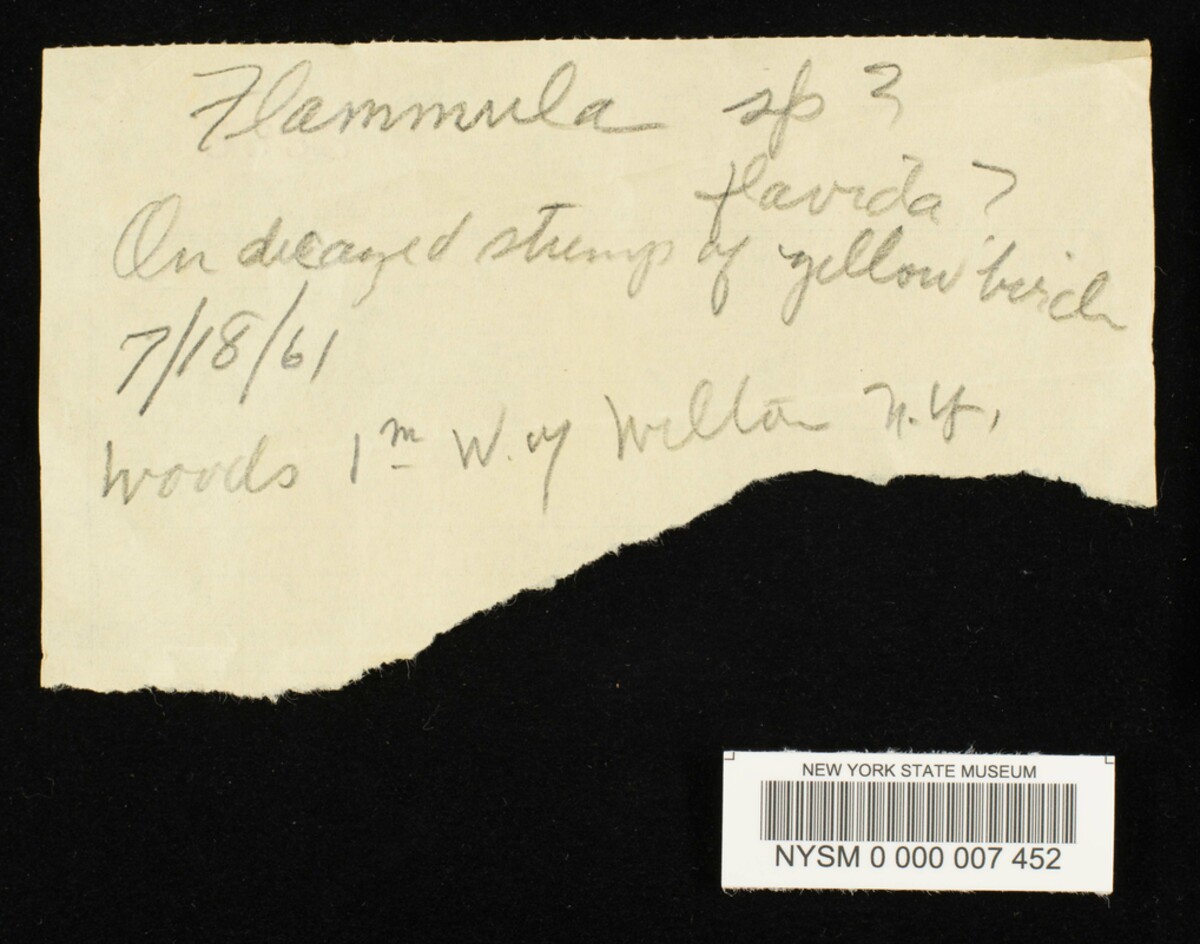 Flammula sp ?
flavida ?
On decayed stump of yellow birch
7/18/61
Woods 1m W. of Wilton N.Y.
NEW YORK STATE MUSEUM
NYSM 0 000 007 452